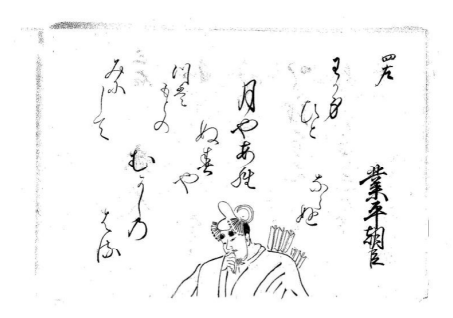 四左
業平朝臣
月やあら
ぬ春や
むかしの
はる
ならぬ
わか身
ひと
つは
もとの
みにして